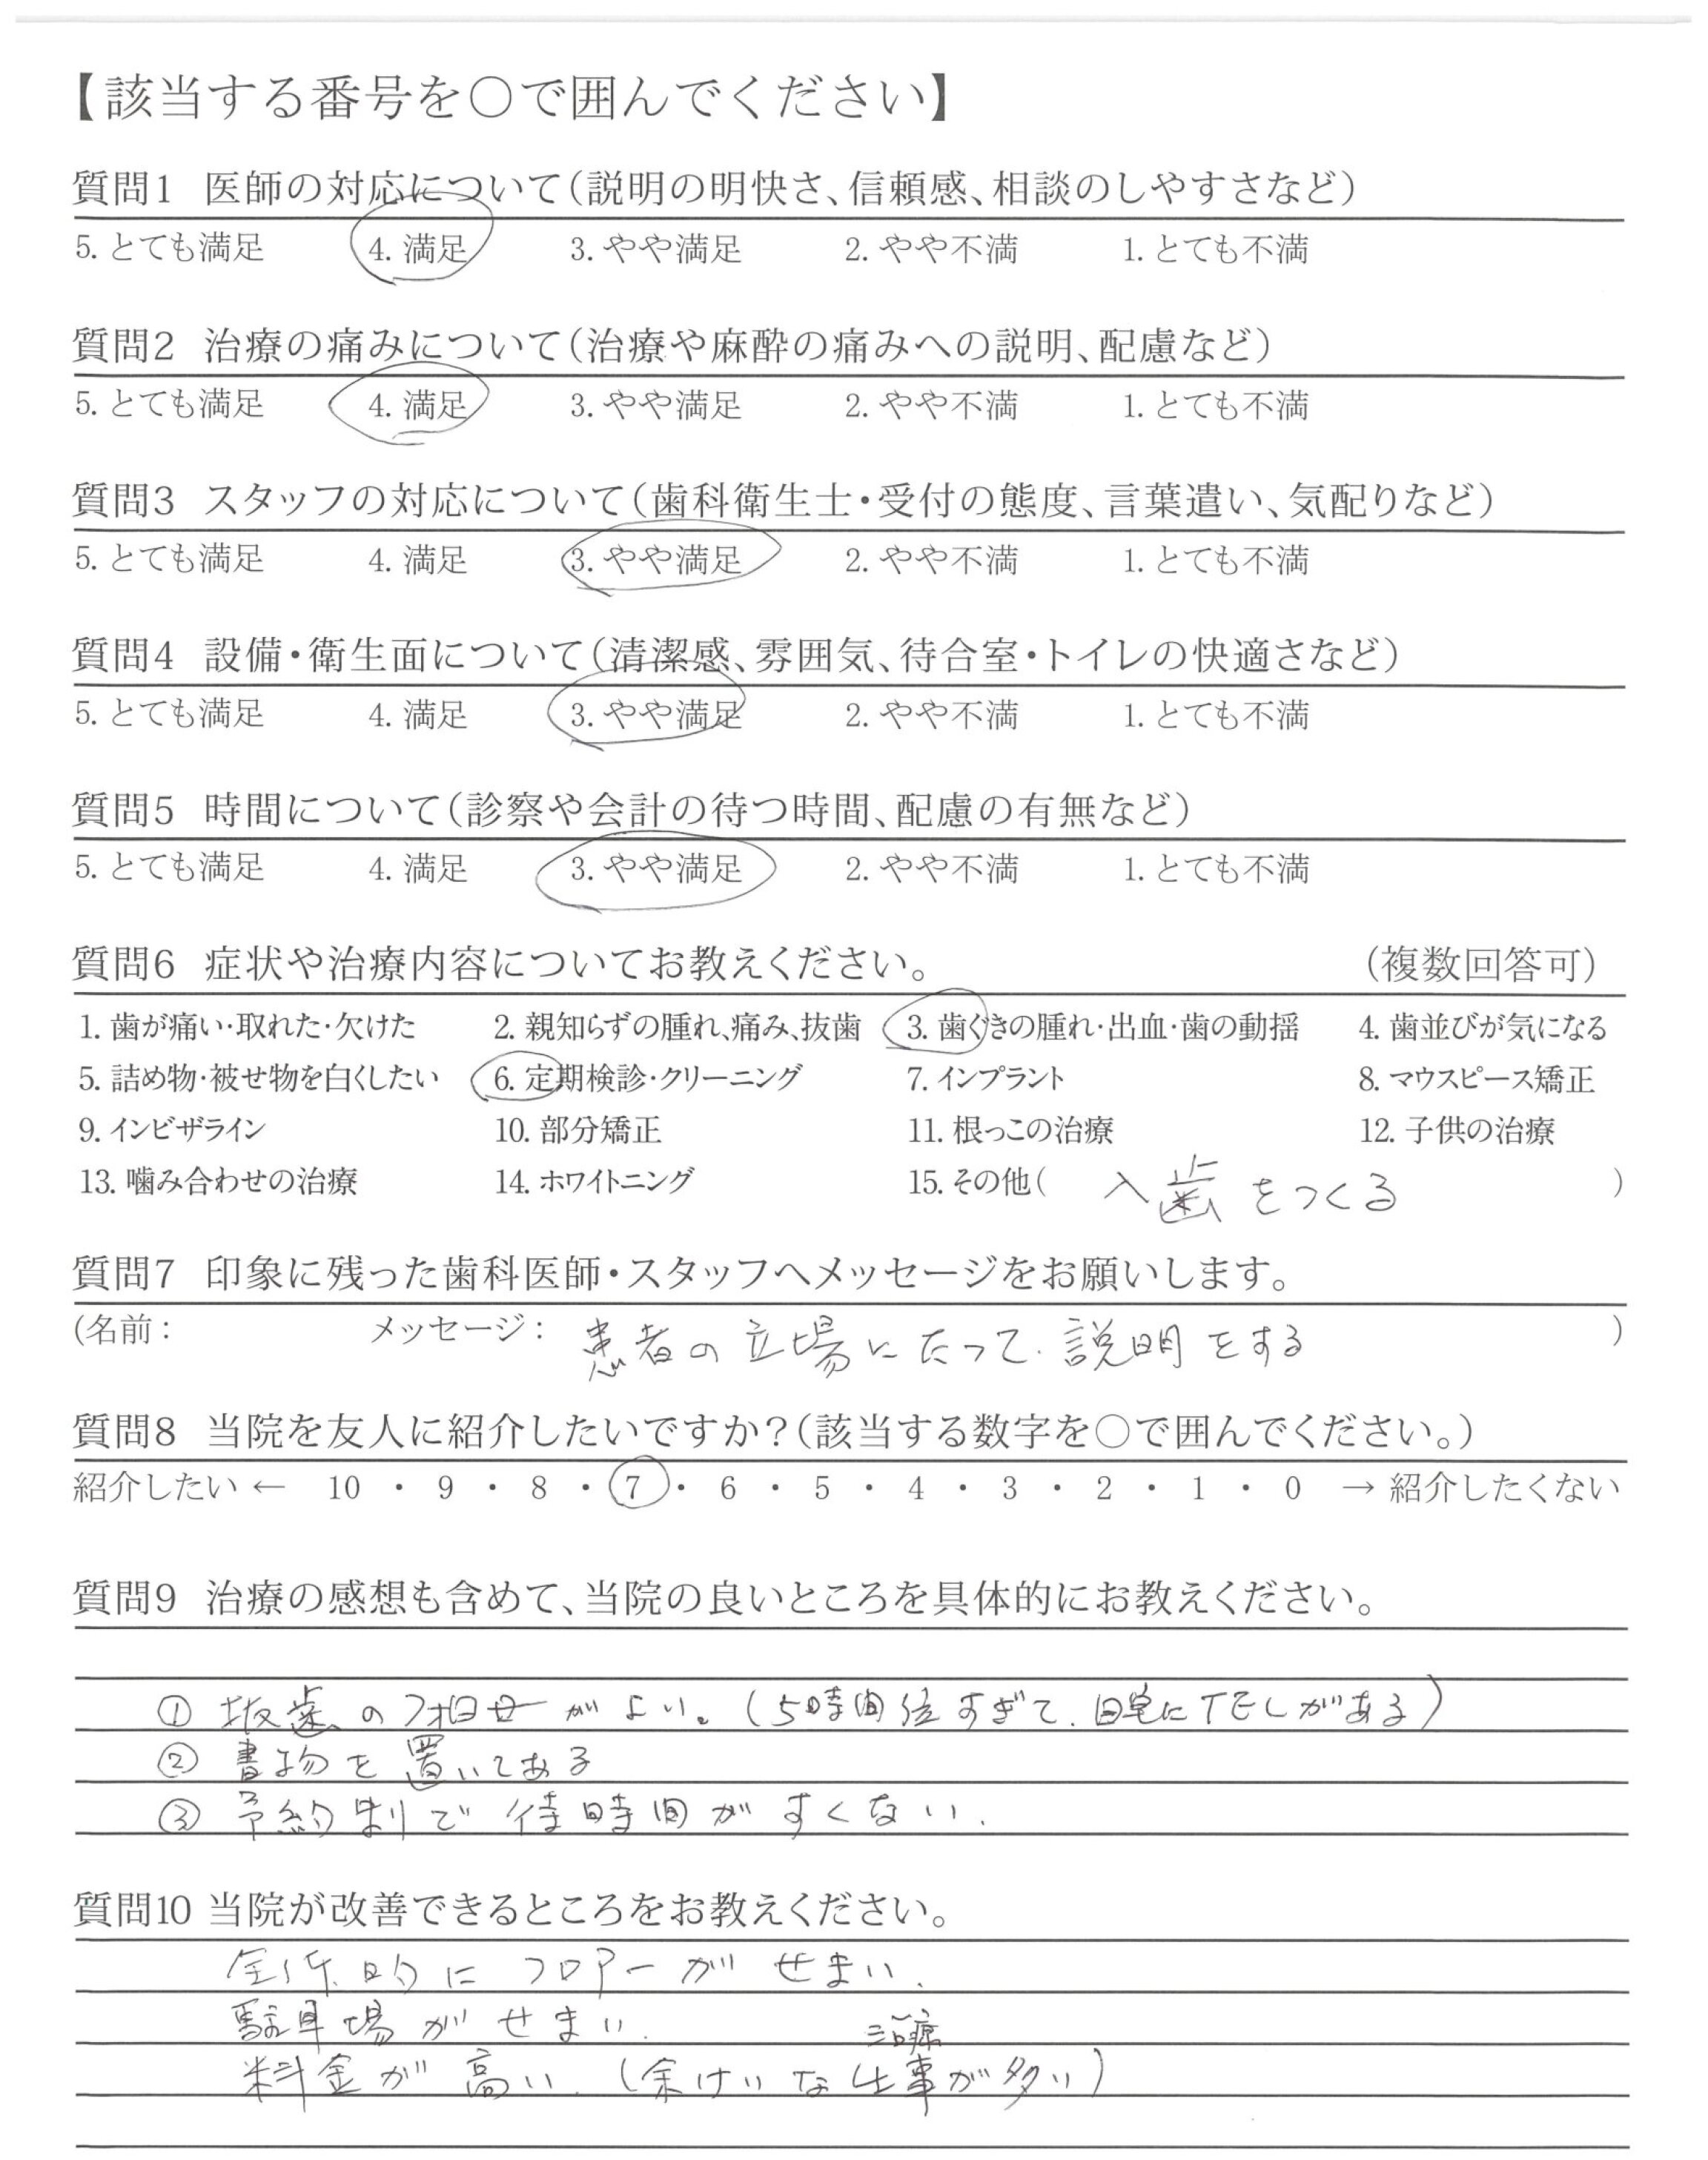 【該当する番号を○で囲んでください】
質問1 医師の対応について(説明の明快さ、信頼感、相談のしやすさなど)
5. とても満足 4. 満足 3. やや満足 2. やや不満 1. とても不満
質問2 治療の痛みについて(治療や麻酔の痛みへの説明、配慮など)
5. とても満足 4. 満足 3. やや満足 2. やや不満 1. とても不満
質問3 スタッフの対応について(歯科衛生士・受付の態度、言葉遣い、気配りなど)
5. とても満足 4. 満足 3. やや満足 2. やや不満 1. とても不満
質問4 設備・衛生面について(清潔感、雰囲気、待合室・トイレの快適さなど)
5. とても満足 4. 満足 3. やや満足 2. やや不満 1. とても不満
質問5 時間について(診察や会計の待つ時間、配慮の有無など)
5. とても満足 4. 満足 3. やや満足 2. やや不満 1. とても不満
質問6 症状や治療内容についてお教えください。 (複数回答可)
1. 歯が痛い・取れた・欠けた 2. 親知らずの腫れ、痛み、抜歯 3. 歯ぐきの腫れ・出血・歯の動揺 4. 歯並びが気になる
5. 詰め物・被せ物を白くしたい 6. 定期検診・クリーニング 7. インプラント 8. マウスピース矯正
9. インビザライン 10. 部分矯正 11. 根っこの治療 12. 子供の治療
13. 噛み合わせの治療 14. ホワイトニング 15. その他( 入歯をつくる )
質問7 印象に残った歯科医師・スタッフへメッセージをお願いします。
(名前: メッセージ: 患者の立場にたって.説明をする )
質問8 当院を友人に紹介したいですか?(該当する数字を○で囲んでください。)
紹介したい ← 10 ・ 9 ・ 8 ・ 7 ・ 6 ・ 5 ・ 4 ・ 3 ・ 2 ・ 1 ・ 0 → 紹介したくない
質問9 治療の感想も含めて、当院の良いところを具体的にお教えください。
① 抜歯のフォローがよい。(5時間位すぎて、自宅にTELがある)
② 書物を置いてある
③ 予約制で待時間がすくない.
質問10 当院が改善できるところをお教えください。
全体的にフロアーがせまい.
駐車場がせまい.
治療
料金が高い.(余けいな仕事が多い)